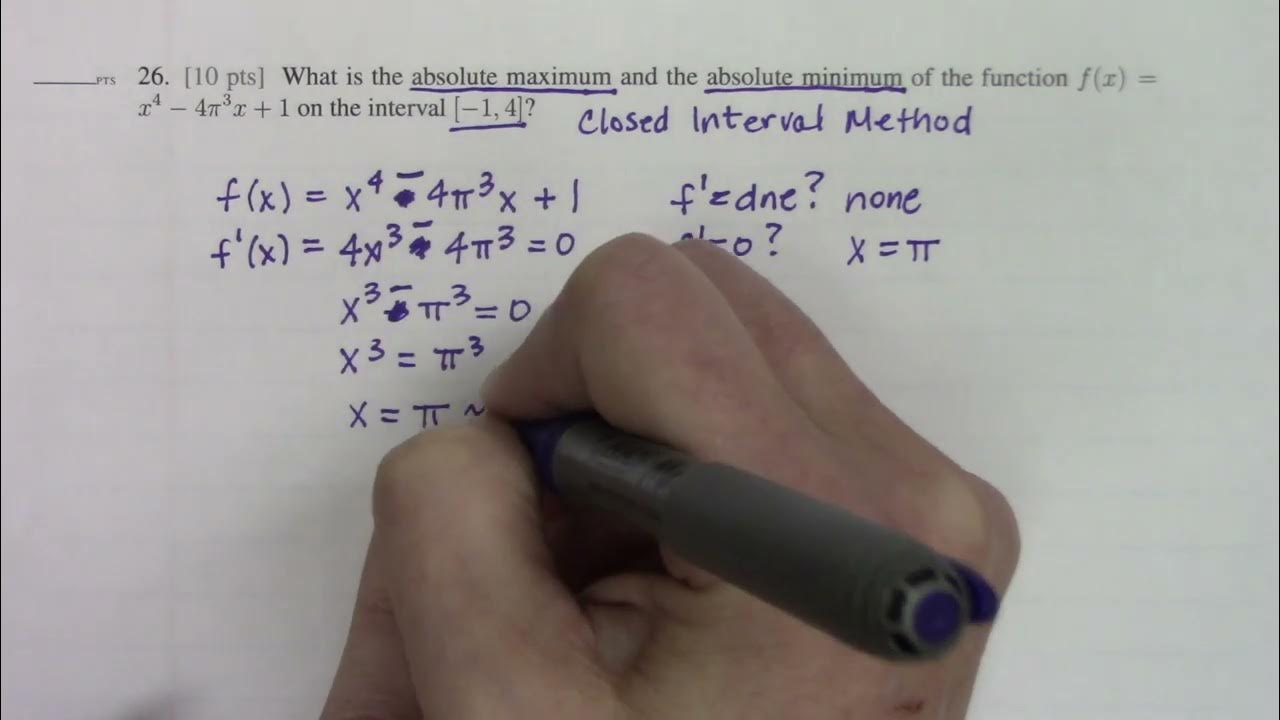 PTS 26. [10 pts] What is the absolute maximum and the absolute minimum of the function f(x) =
x⁴ − 4π³x + 1 on the interval [−1, 4]?
Closed Interval Method
f(x) = x⁴ - 4π³x + 1
f'= dne? none
f'(x) = 4x³ - 4π³ = 0
=0? x = π
x³ - π³ = 0
x³ = π³
x = π ~